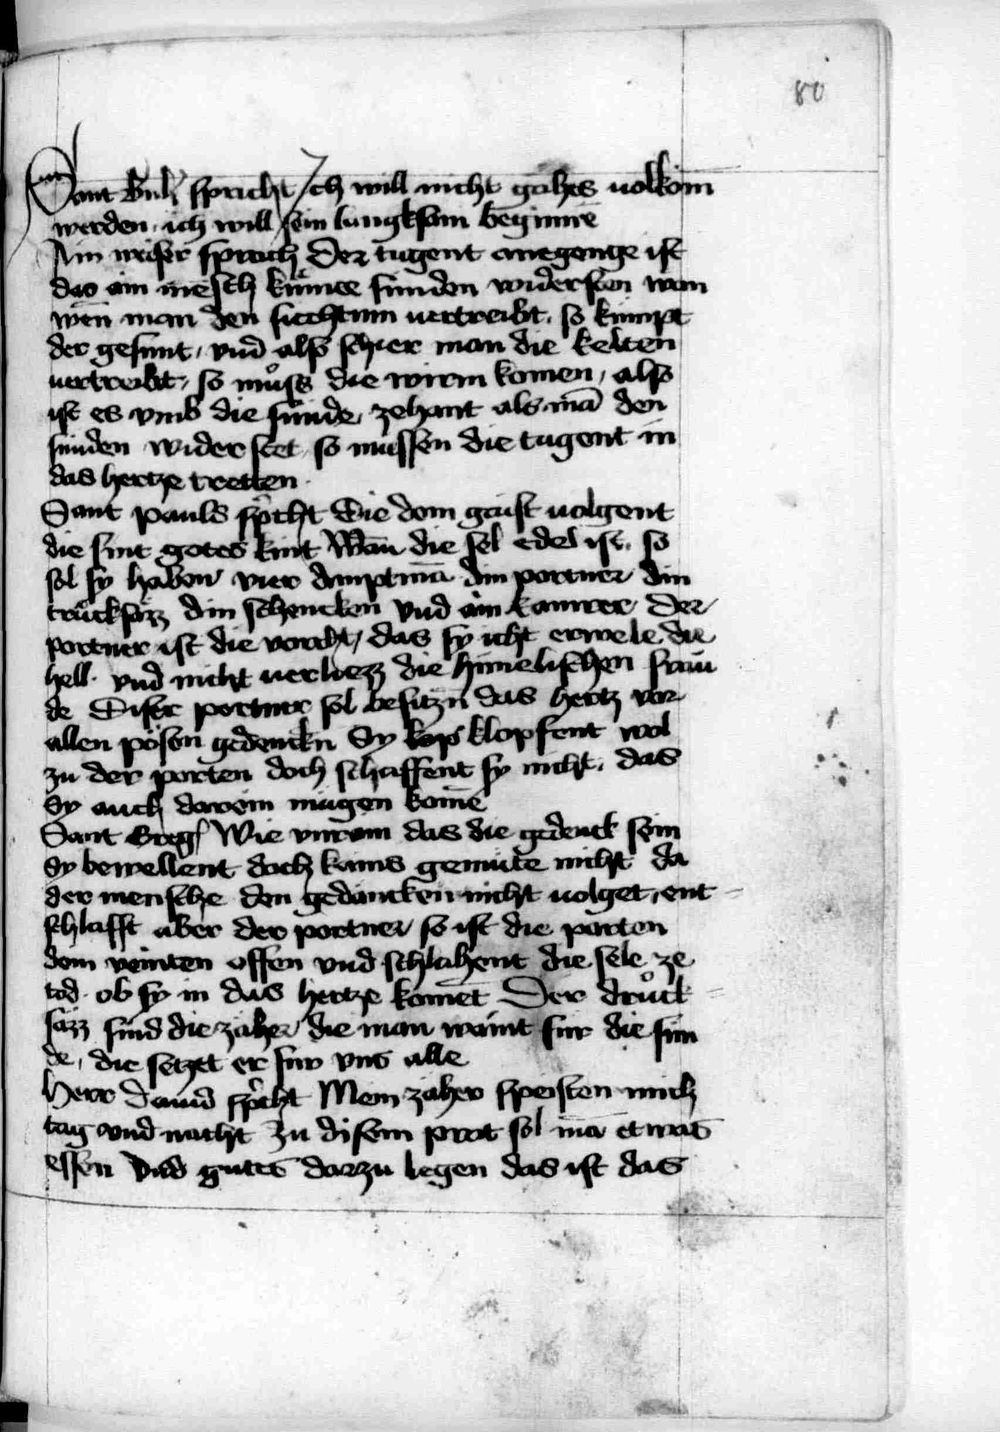 80
Sant Bnh̄ spricht Ich will nicht gahes uolkom̄
werden, ich will sein langksam beginnē
Ain weiser sprach Der tugent anegenge ist
das ain mēsch kunne sunden widersten wan
wen̄ man den siechtum uertreibt, so kumpt
der gesunt, vnd alss schier man die kelten
uertreibt, so muͦss die wirm komen, alss
ist es vmb die sunde, zehant als mā den
sunden widerstet, so mussen die tugent in
das hertze tretten.
Sant pauls sp̄cht Die dem geist uolgent
die sint gotes kint Wan̄ die sel edel ist, so
sol sy haben vier amptmā ain portner ain
truͦcksazz ain schencken vnd ain kamrer Der
portner ist die vorcht, das sy icht erwele die
hell. vnd nicht uerliezz die himelischen frau
de Diser portner sol besitzn̄ das hertz vor
allen pösen gedenckn Sy klopfent wol
zu der porten doch schaffent sy nicht, das
Sy auch darein mugen komē
Sant Greg᷒ Wie vnrain das die gedenck sein
Sy bewellent doch kains gemüte nicht da
der mensche den gedäncken nicht uolget, ent-
schlafft aber der portner so ist die porten
dem veinten offen vnd schlahent die sele ze
tod. ob sy in das hertze komēt Der druͦck=
sazz sind die zaher, die man waint fur die sun
de, die setzet er fur vns alle
Herr Dauid sp̄cht Mein zaher speisten mich
tag vnd nacht Zu disem prot sol mā etwas
essen Vnd gutes darzu legen das ist das